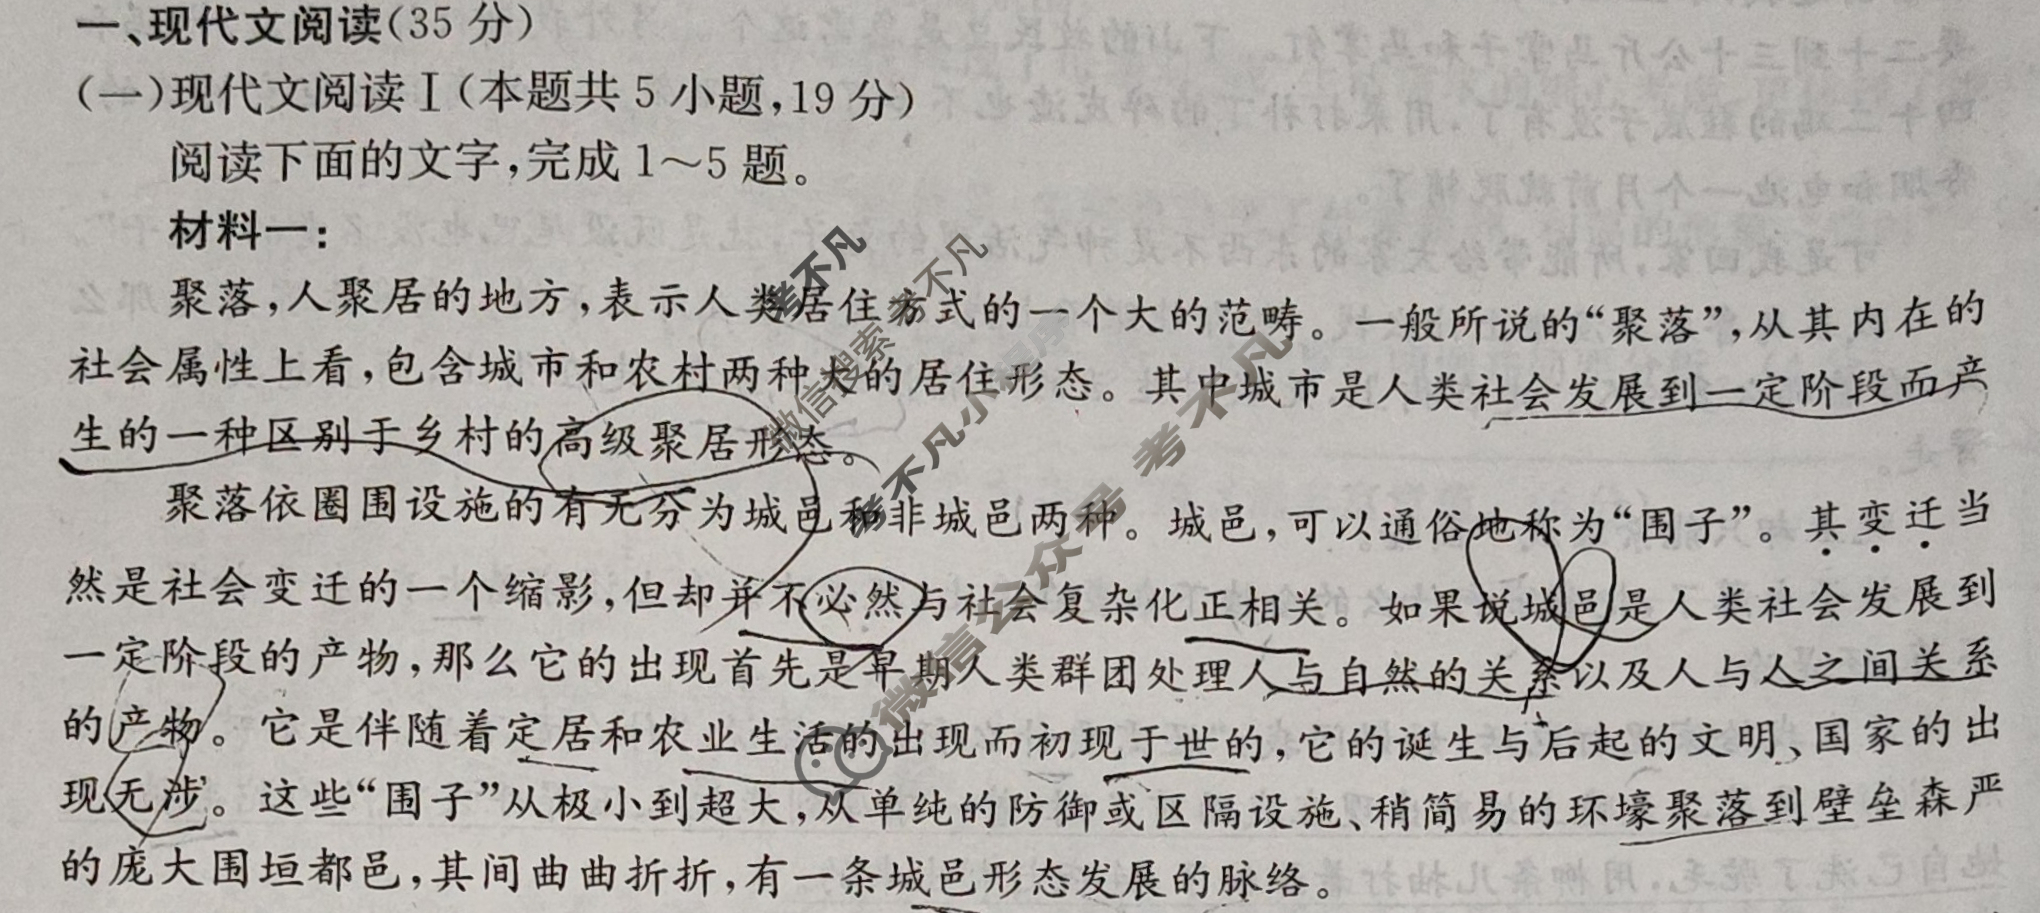 一、现代文阅读(35 分)
(一)现代文阅读 I (本题共 5 小题,19 分)
阅读下面的文字,完成 1～5 题。
材料一:
聚落,人聚居的地方,表示人类居住方式的一个大的范畴。一般所说的“聚落”,从其内在的
社会属性上看,包含城市和农村两种大的居住形态。其中城市是人类社会发展到一定阶段而产
生的一种区别于乡村的高级聚居形态。
聚落依圈围设施的有无分为城邑和非城邑两种。城邑,可以通俗地称为“围子”。其变迁当
然是社会变迁的一个缩影,但却并不必然与社会复杂化正相关。如果说城邑是人类社会发展到
一定阶段的产物,那么它的出现首先是早期人类群团处理人与自然的关系以及人与人之间关系
的产物。它是伴随着定居和农业生活的出现而初现于世的,它的诞生与后起的文明、国家的出
现无涉。这些“围子”从极小到超大,从单纯的防御或区隔设施、稍简易的环壕聚落到壁垒森严
的庞大围垣都邑,其间曲曲折折,有一条城邑形态发展的脉络。
考不凡
微信搜索 考不凡
考不凡小程序
微信公众号 考不凡